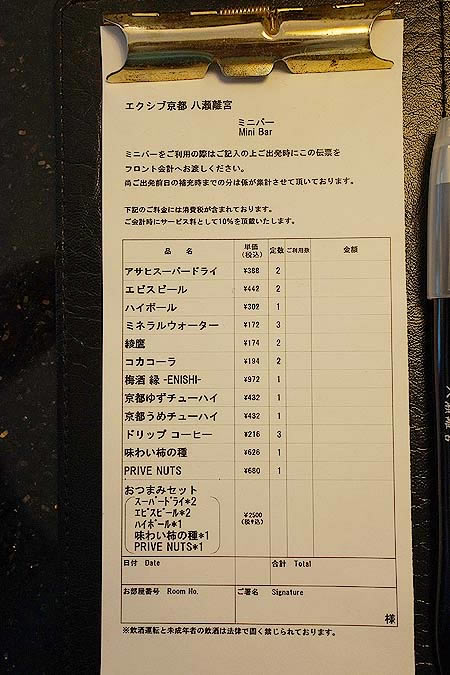 エクシブ京都 八瀬離宮
ミニバー
Mini Bar
ミニバーをご利用の際はご記入の上ご出発時にこの伝票を
フロント会計へお渡しください。
尚ご出発前日の補充時までの分は係が集計させて頂いております。
下記のご料金には消費税が含まれております。
ご会計時にサービス料として10%を頂戴いたします。
品 名 単価(税込) 定数 ご利用数 金額
アサヒスーパードライ ¥388 2
エビスビール ¥442 2
ハイボール ¥302 1
ミネラルウォーター ¥172 3
綾鷹 ¥174 2
コカコーラ ¥194 2
梅酒 縁 -ENISHI- ¥972 1
京都ゆずチューハイ ¥432 1
京都うめチューハイ ¥432 1
ドリップ コーヒー ¥216 3
味わい柿の種 ¥626 1
PRIVE NUTS ¥680 1
おつまみセット
スーパードライ*2
エビスビール*2
ハイボール*1
味わい柿の種*1
PRIVE NUTS*1
¥2500
(税込)
日付 Date 合計 Total
お部屋番号 Room No. ご署名 Signature
様
※飲酒運転と未成年者の飲酒は法律で固く禁じられております。